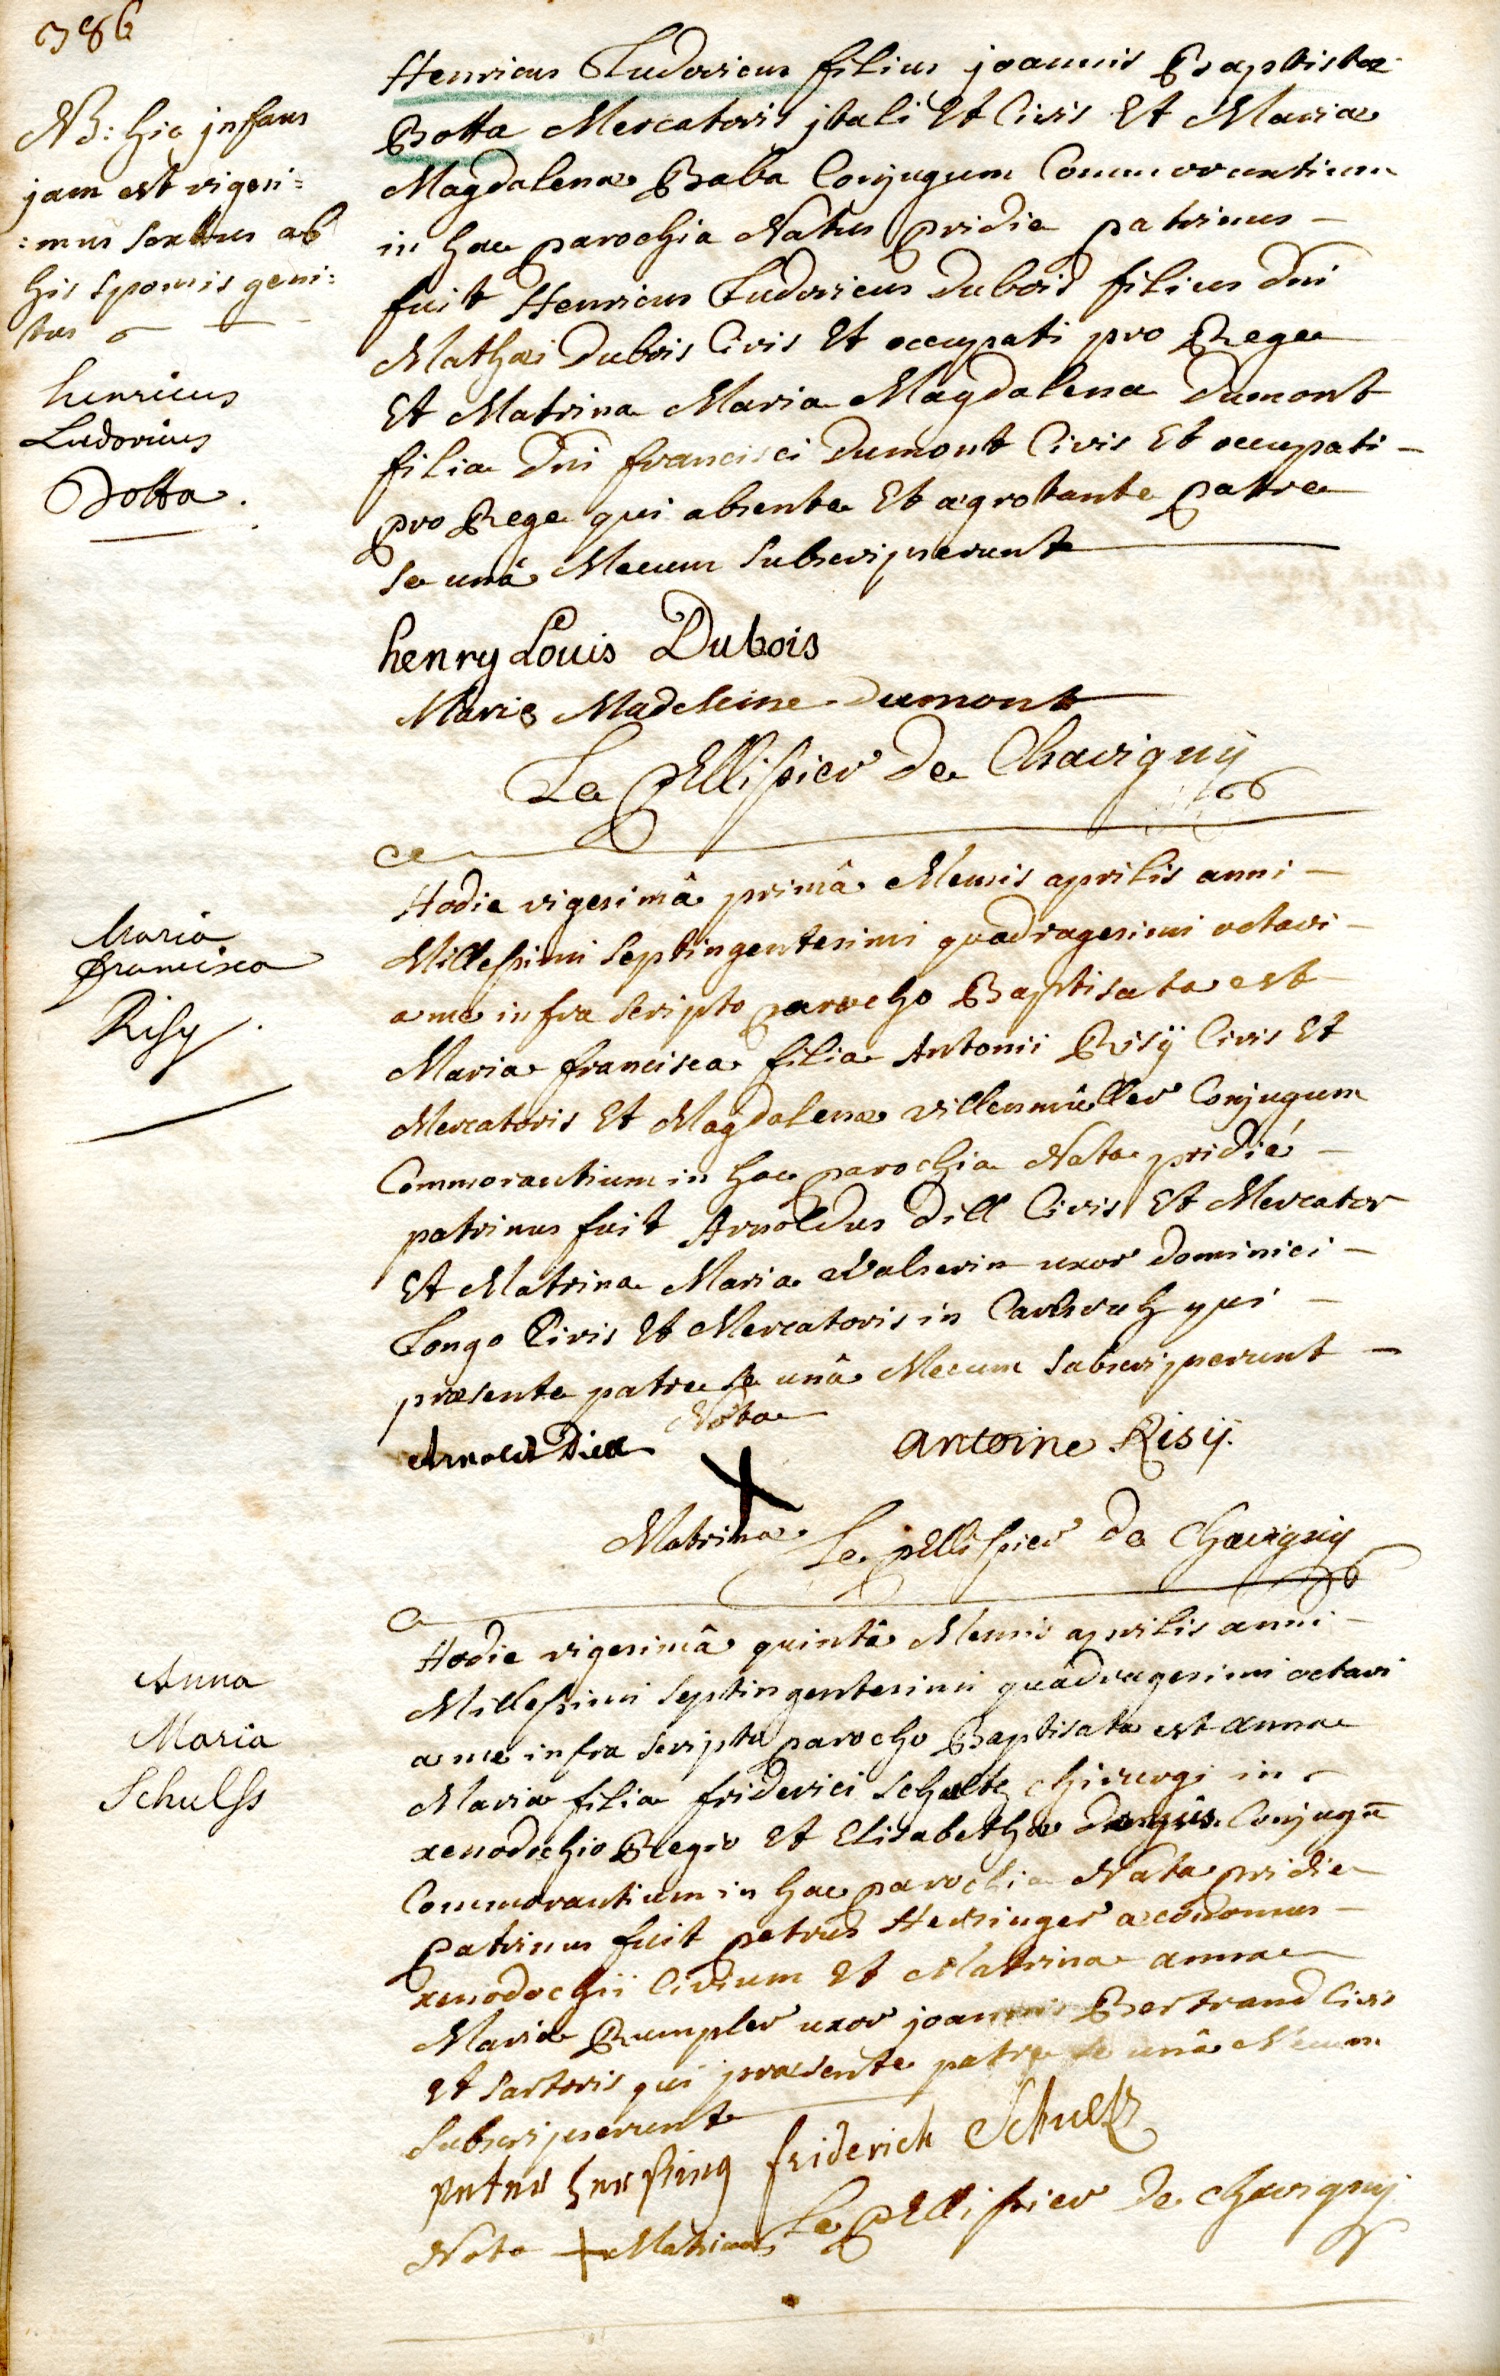 386
NB: hic jnfans
jam est vigesi=
=mus sextus ab
his sponsis geni=
tus
henricus
Ludovicus
Botta.
Henricus Ludovicus filius joannis Baptistæ
Botta Mercatoris jtali Et Civis Et Mariæ
Magdalenæ Baba Conjugum Commorantium
in hac parochia Natus pridie patrinus -
fuit Henricus Ludovicus Dubois filius Dni
Mathæi Dubois Civis Et occupati pro Rege
Et Matrina Maria Magdalena Dumont
filia Dni francisci Dumont Civis Et occupati -
pro Rege qui absente Et ægrotante Patre
se unâ Mecum Subscripserunt
henry Louis Dubois
Marie Madeleine dumont
Le pellissier de Chavigny
Maria
francisca
Risy.
Hodie vigesimâ primâ Mensis aprilis anni -
Millessimi Septingentesimi quadragesimi octavi -
a me infra scripto parocho Baptisata est
Maria francisca filia Antonii Risÿ Civis Et
Mercatoris Et Magdalenæ villenmüller Conjugum
Commorantium in hac parochia Nata pridie -
patrinus fuit Arnoldus Dill Civis Et Mercator
Et Matrina Maria Walserin uxor Dominici -
Longo Civis Et Mercatoris in Carlsruh qui -
præsente patre se unâ Mecum subscripserunt -
Nota
Arnold Dill
antoine Risÿ.
Matrinæ
Le pellissier de Chavigny
Anna
Maria
Schulss
Hodie vigesimâ quintâ Mensis aprilis anni -
Millessimi Septingentesimi quadragesimi octavi
a me infra scripto parocho Baptisata est anna
Maria filia friderici Schultz chirurgi in
xenodochio Regio Et Elisabethæ Conjugū
Commorantium in hac parochia Nata pridie
Patrinus fuit petrus Hersinger æconomus -
xenodochii Civium Et Matrina anna
Maria Rumpler uxor joannis Bertrand Civis
Et sartoris qui præsente patre se unâ Mecum
Subscripserunt
peter hersing friderich Schultz
Nota + Matrinæ Le pellissier de chavigny